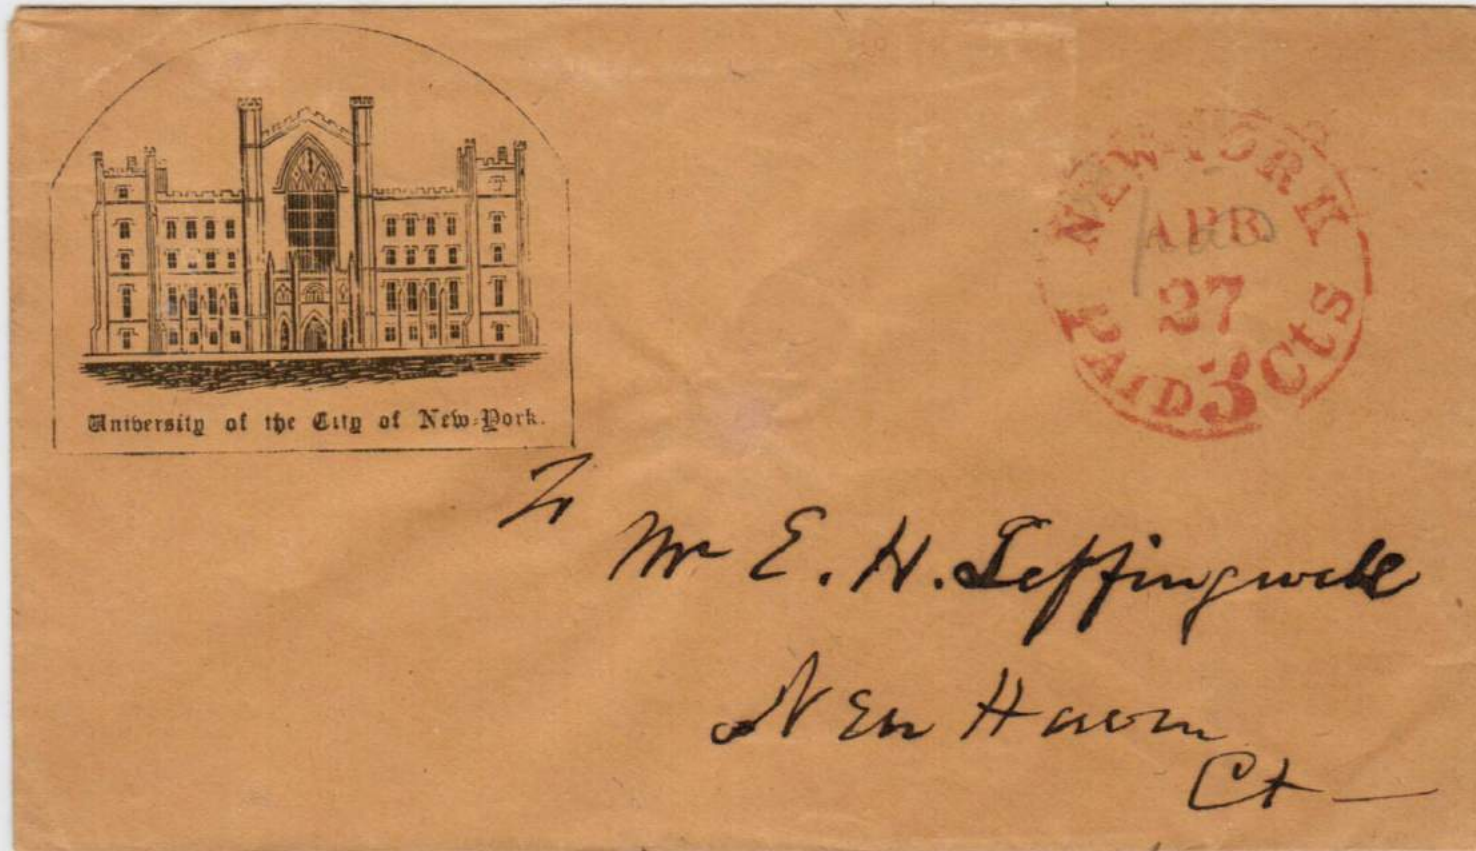 University of the City of New-York.
NEW-YORK
APR
27
PAID 3 Cts
To
Mr E. H. Leffingwell
New Haven
Ct